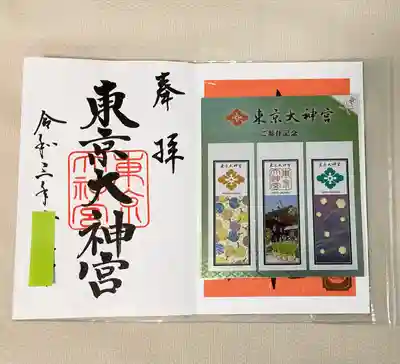 奉拝
東京大神宮
東京
大神宮
令和三年
東京大神宮
ご参拝記念
東京大神宮
東京大神宮
東京大神宮